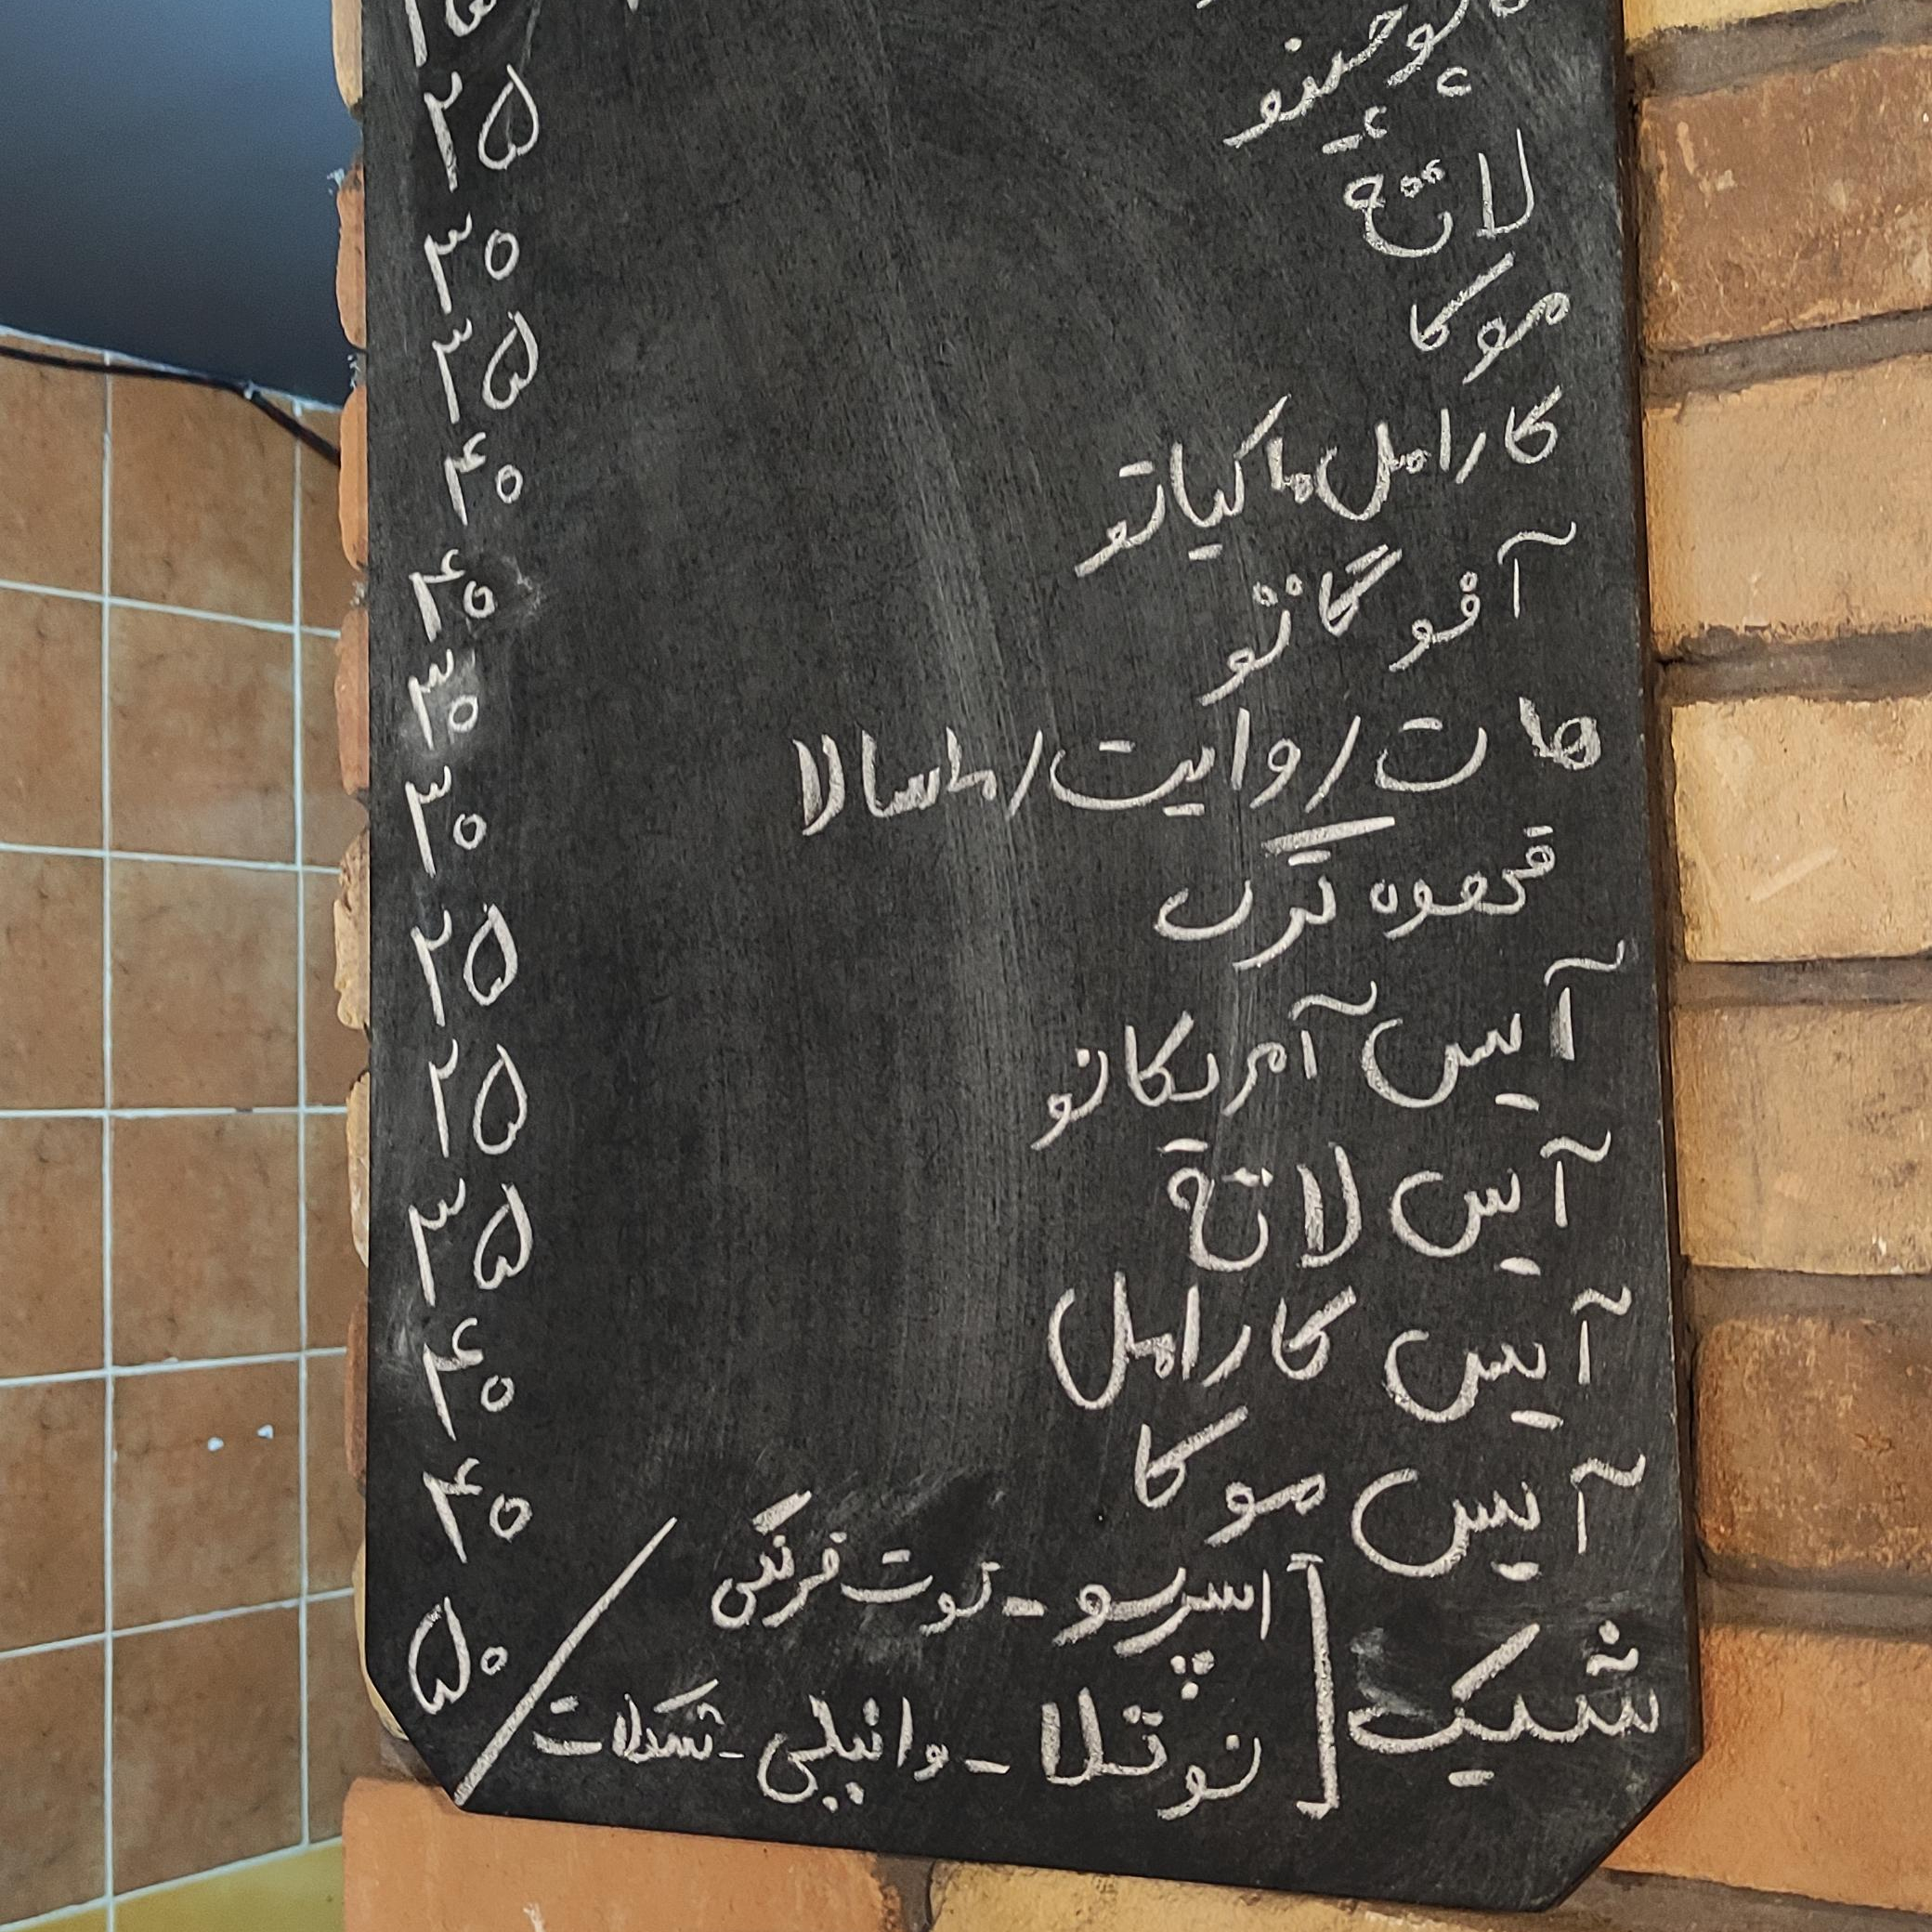 پوچینو
لاته
موکا
کارامل ماکیاتو
آفوگاتو
هات/وایت/ماسالا
قهوه ترک
آیس آمریکانو
آیس لاته
آیس کارامل
آیس موکا
شیک
اسپرسو - توت فرنگی
نوتلا - وانیلی - شکلات
۲۵
۳۰
۳۵
۴۰
۴۰
۳۰
۳۰
۲۵
۲۵
۳۵
۴۰
۴۰
۵۰